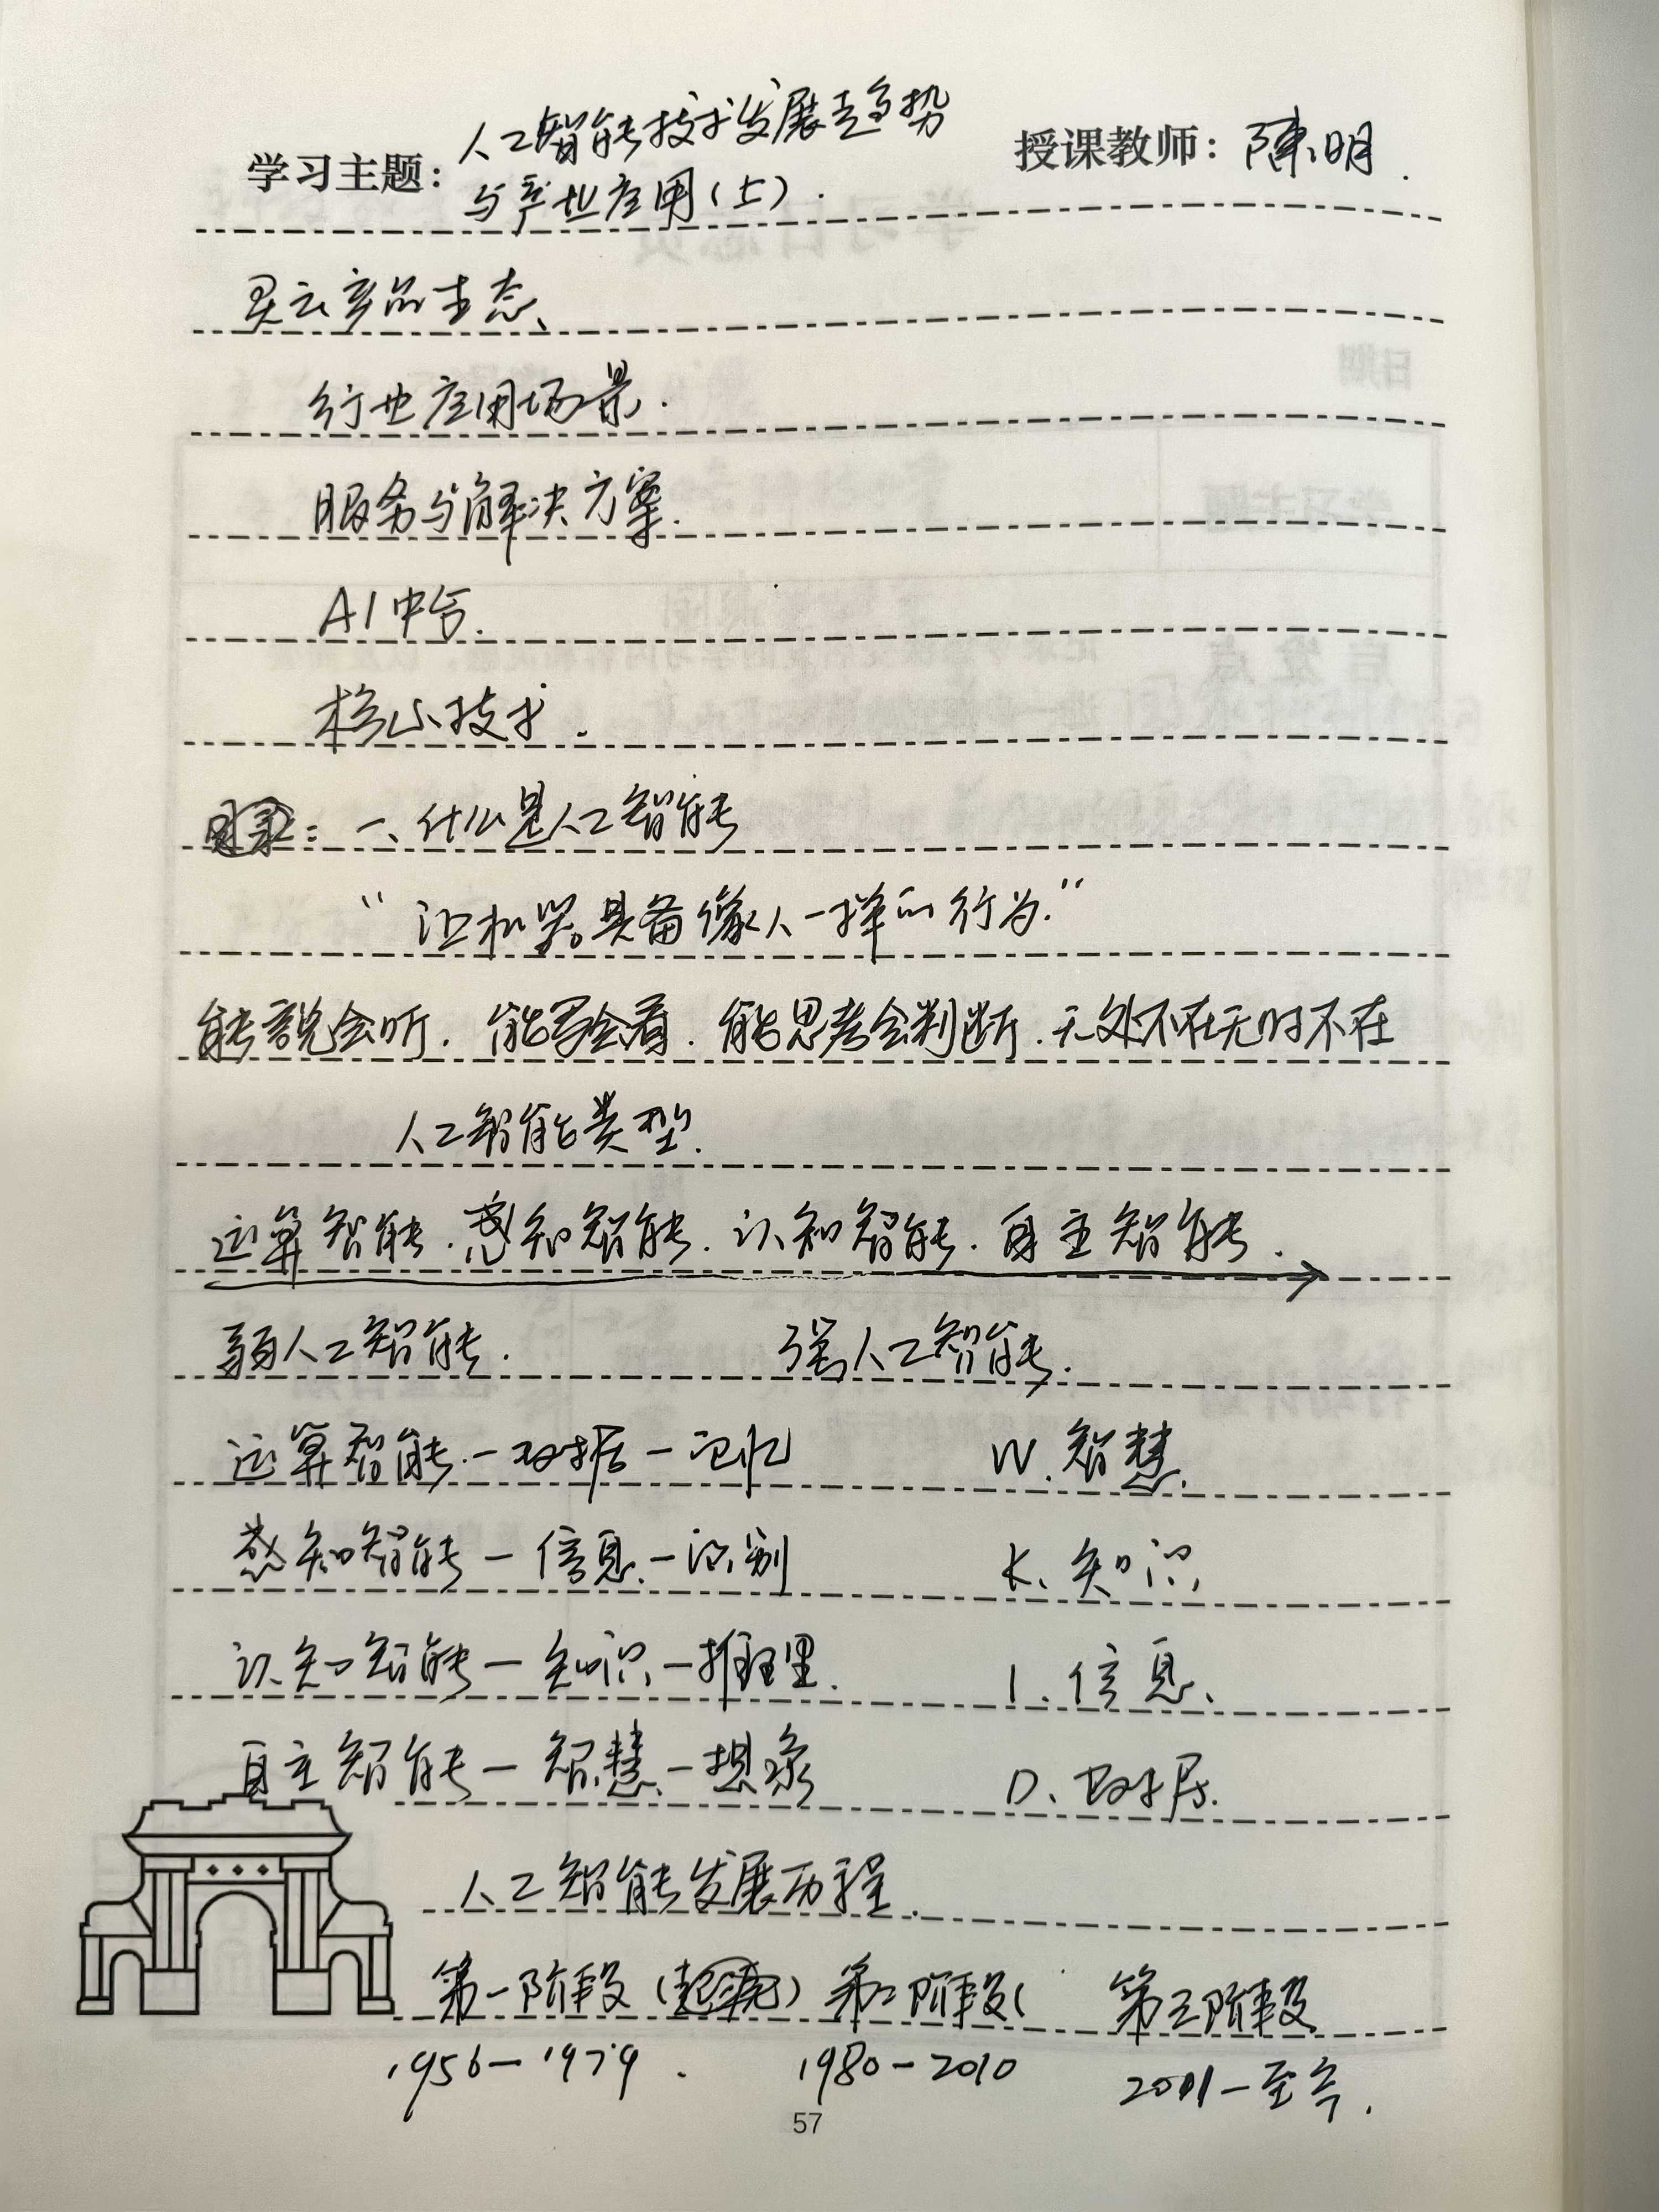 学习主题：人工智能技术发展趋势
与产业应用（上）.
授课教师：陈明.
灵云产品生态、
行业应用场景.
服务与解决方案.
AI中台.
核心技术.
目录：一、什么是人工智能
“让机器具备像人一样的行为.”
能说会听.能写会看.能思考会判断.无处不在无时不在
人工智能类型.
运算智能.感知智能.认知智能.自主智能.
弱人工智能. 强人工智能.
运算智能.—数据—记忆 W.智慧.
感知智能—信息.—识别 K.知识
认知智能—知识—推理. I.信息、
自主智能—智慧—想象 D.数据.
人工智能发展历程.
第一阶段（起源）第二阶段（ 第三阶段
1956—1979. 1980—2010 2011—至今.
57